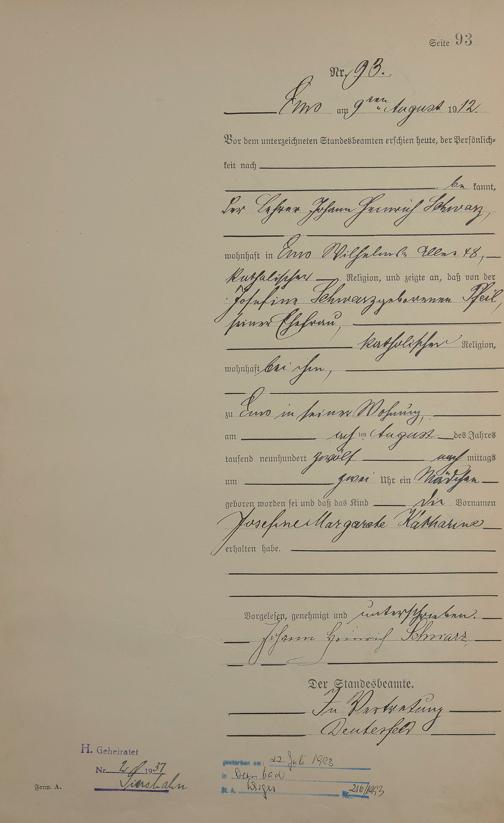 Seite 93
Nr. 93.
Ems am 9ten August 1912.
Vor dem unterzeichneten Standesbeamten erschien heute, der Persönlich-
keit nach
be kannt,
der Lehrer Johann Heinrich Schwarz,
wohnhaft in Ems Wilhelms Allee 48,
katholischer Religion, und zeigte an, daß von der
Josefine Schwarz geborenen Pfeil,
seiner Ehefrau,
katholischer Religion,
wohnhaft bei ihm,
zu Ems in seiner Wohnung,
am acht im August des Jahres
tausend neunhundert zwölf nach mittags
um zwei Uhr ein Mädchen
geboren worden sei und daß das Kind die Vornamen
Josefine Margarete Katharine
erhalten habe.
Vorgelesen, genehmigt und unterschrieben.
Johann Heinrich Schwarz
Der Standesbeamte.
In Vertretung
H. Geheiratet
Nr. 1937
gestorben am: 22. Juli 1993
in
St. A.
Nr. 216/1993
Form. A.